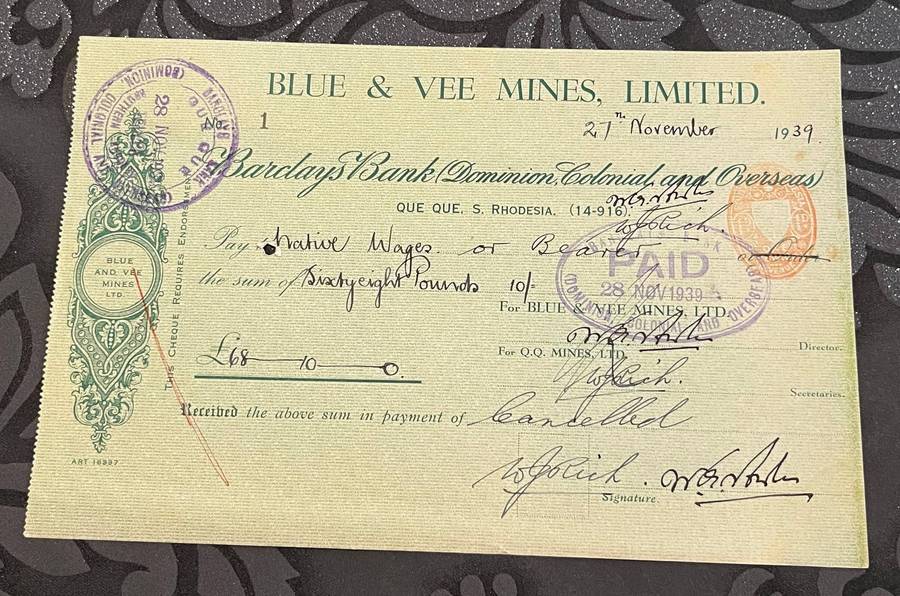 BLUE & VEE MINES, LIMITED.
No. 1
27th November 1939.
Barclays Bank (Dominion, Colonial and Overseas)
QUE QUE. S. RHODESIA. (14-916).
W J Rich.
Pay Native Wages or Bearer or Order
the sum of Sixtyeight Pounds 10/-
PAID
28 NOV 1939
(DOMINION, COLONIAL AND OVERSEAS)
For BLUE & VEE MINES, LTD.
Director.
For Q.Q. MINES, LTD.
W J Rich.
Secretaries.
£68—10—0.
Received the above sum in payment of Cancelled
W J Rich.
Signature.
BLUE
AND VEE
MINES
LTD.
THIS CHEQUE REQUIRES ENDORSEMENT
ART 16997
BARCLAYS BANK
(DOMINION, COLONIAL AND OVERSEAS)
QUE QUE
28 NOV 1939
SOUTHERN RHODESIA